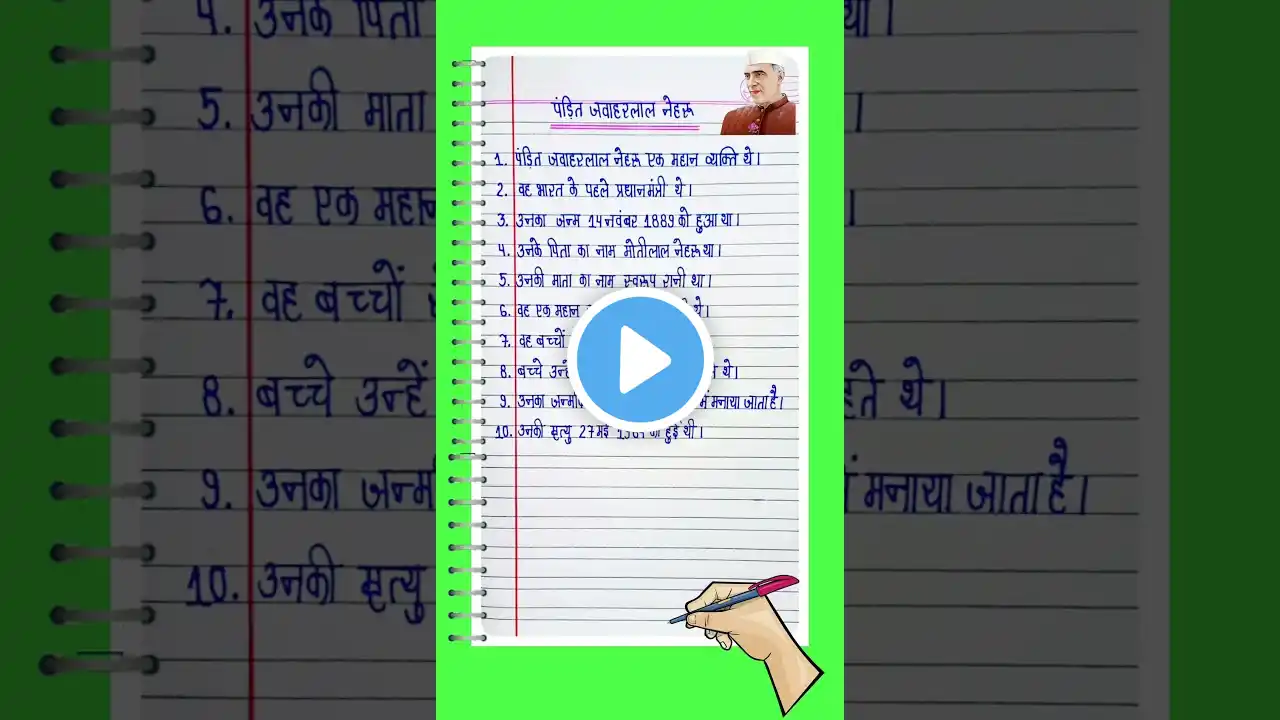 पंडित जवाहरलाल नेहरू
1. पंड़ित जवाहरलाल नेहरू एक महान व्यक्ति थे।
2. वह भारत के पहले प्रधानमंत्री थे।
3. उनका जन्म 14 नवंबर 1889 को हुआ था।
4. उनके पिता का नाम मोतीलाल नेहरू था।
5. उनकी माता का नाम स्वरूप रानी था।
6. वह एक महान थे।
7. वह बच्चों
8. बच्चे थे।
9. उनका में मनाया जाता है।
10. उनकी मृत्यु 27 मई हुई थी।
4. उनके पिता था।
5. उनकी माता
6. वह एक
7. वह बच्चों
8. बच्चे उन्हें थे।
9. उनका मनाया जाता है।
10. उनकी मृत्यु